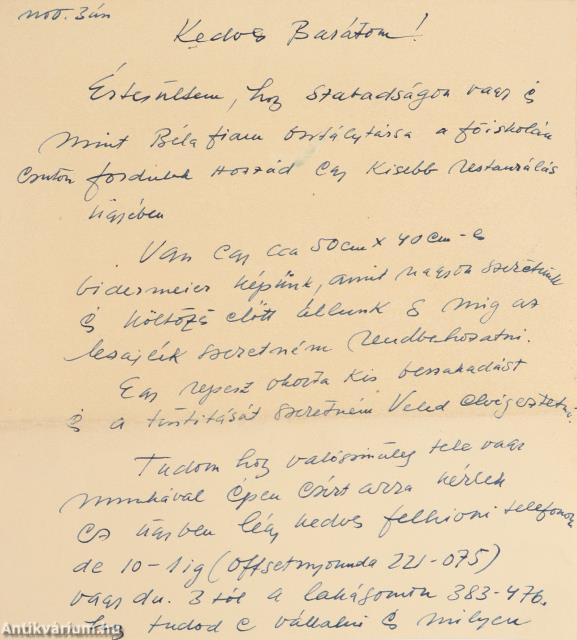 nov. 3án
Kedves Barátom!
Értesültem, hog szabadságon vagy és
mint Béla fiam osztálytársa a főiskolán
ezúton fordulok Hozzád egy kisebb restaurálás
ügyében
Van egy cca 50cm x 40cm-es
bidermeier képünk, amit nagyon szeretünk
és költözés előtt állunk s míg az
lezajlik szeretném rendbehozatni.
Egy repesz okozta kis beszakadást
és a tisztitását szeretném Veled elvégeztetni.
Tudom hog valószinüleg tele vagy
munkával éppen ezért arra kérlek
ez ügyben légy kedves felhivni telefonon
de 10-1ig (Offsetnyomda 221-075)
vagy du. 3tól a lakásomon 383-476.
hog tudod e vállalni és milyen
Antikvárium.hu